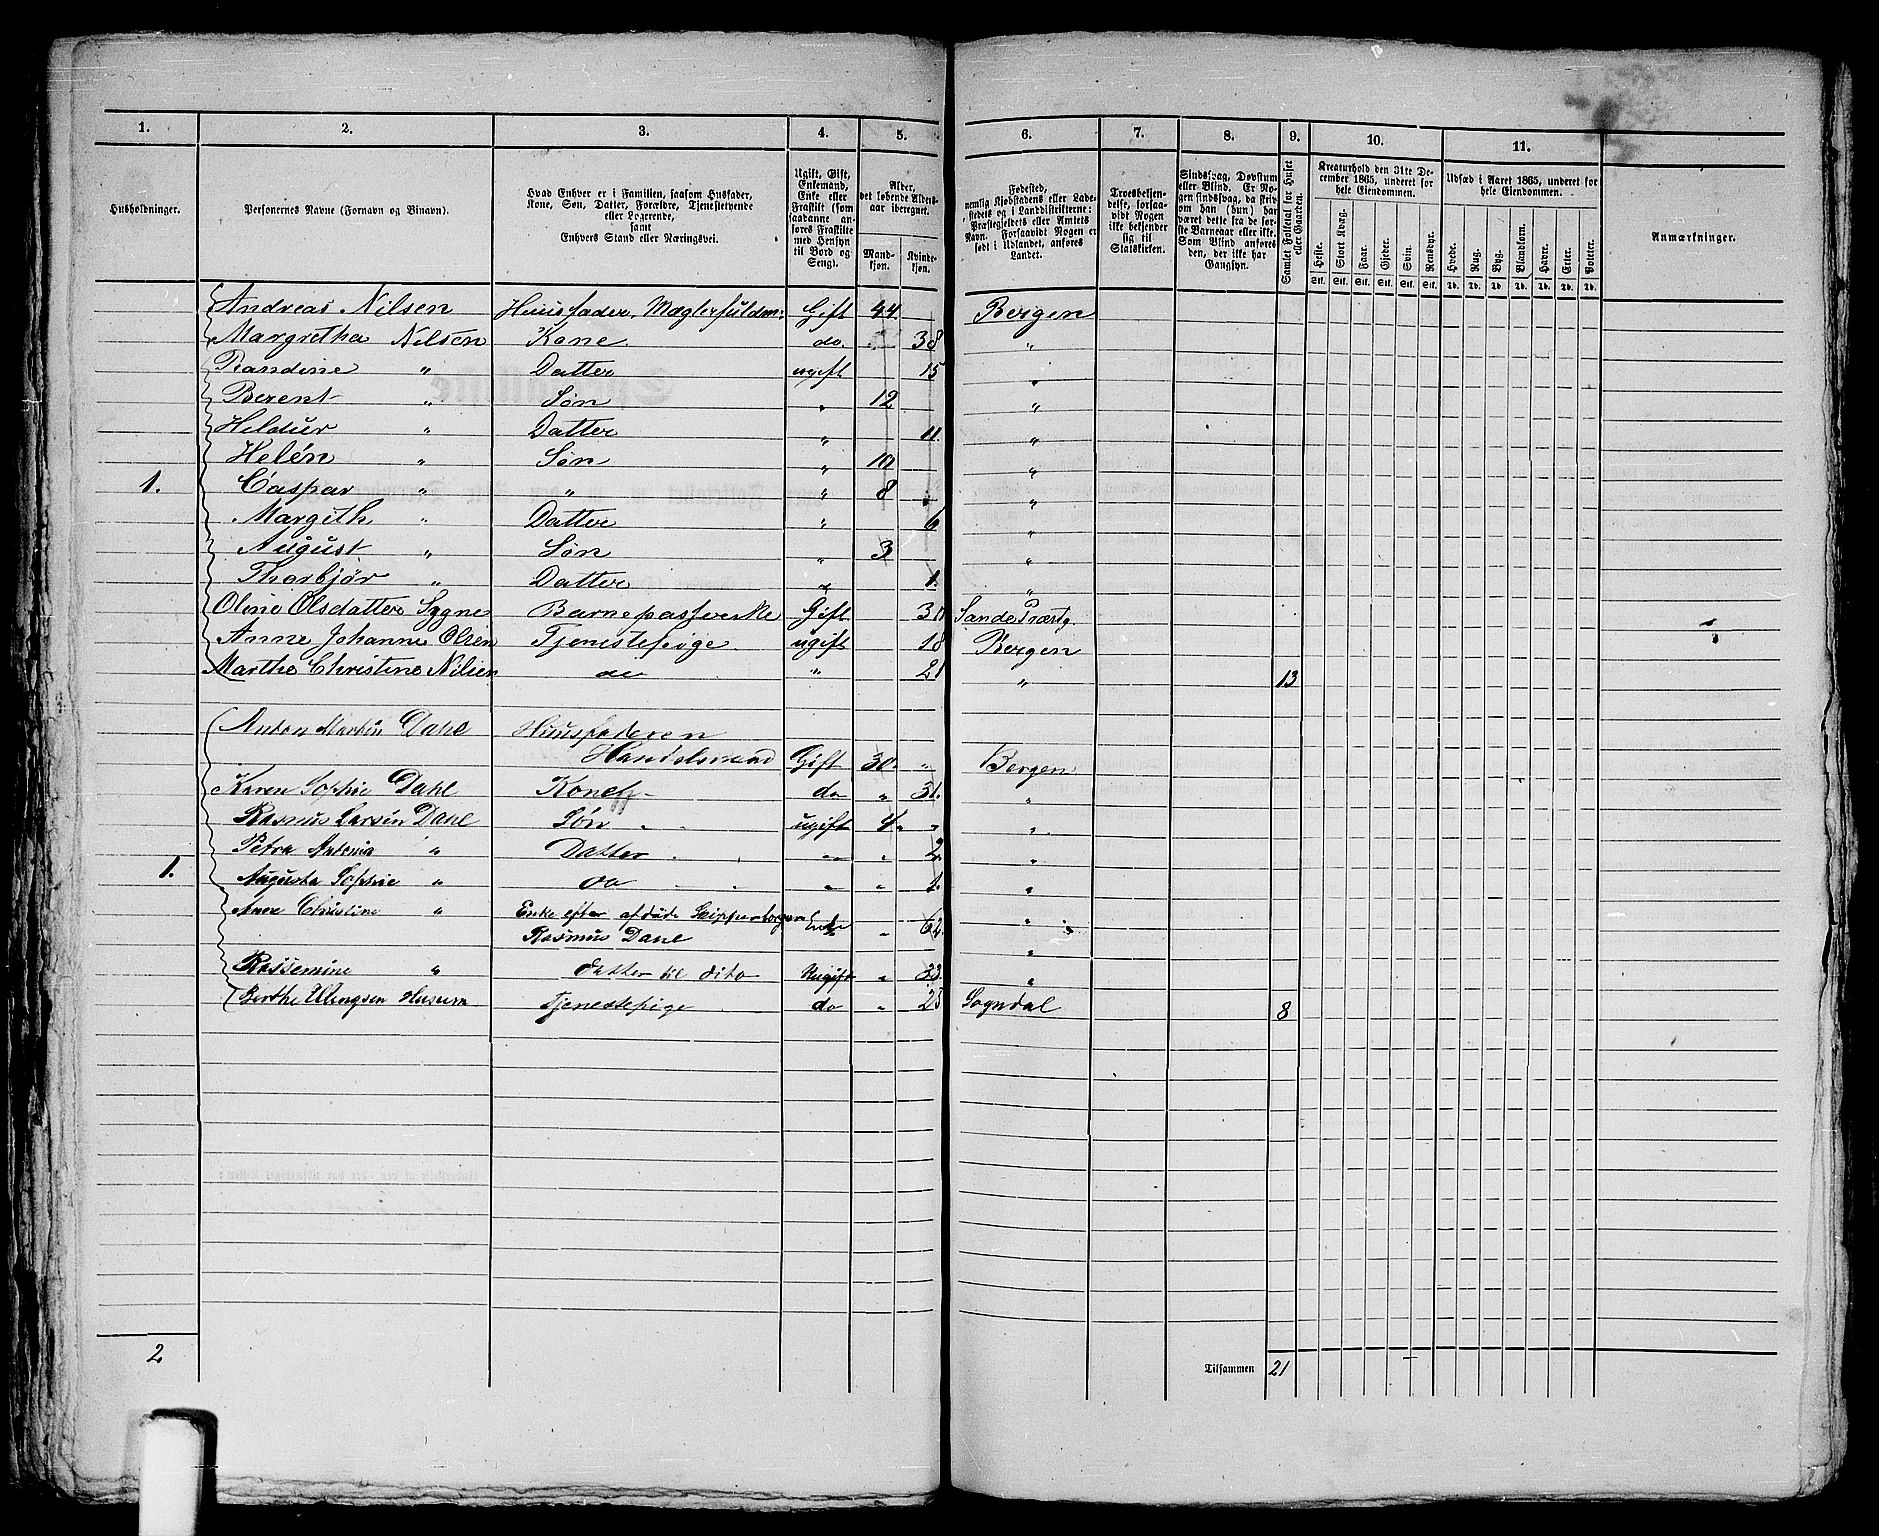 1. 2. 3. 4. 5. 6. 7. 8. 9. 10. 11.
Husholdninger.
Personernes Navne (Fornavn og Tilnavn).
Hvad Enhver er i Familien, saasom Husfader,
Kone, Søn, Datter, Forældre, Tjenestetyende
eller Logerende,
samt
Enhvers Stand eller Næringsvei.
Ugift, Gift,
Enkemand,
Enke eller
Fraskilt (som
saadanne an-
føres Fraskilte
med Hensyn
til Bord og
Seng).
Alder,
det løbende Alders-
aar iberegnet.
Mand-
kjøn.
Kvinde-
kjøn.
Fødested,
nemlig Kjøbstadens eller Lade-
stedets og i Landdistrikterne:
Præstegjeldets eller Amtets
Navn. Forsaavidt Nogen er
født i Udlandet, anføres
Landet.
Troesbekjen-
delse, forsaa-
vidt Nogen
ikke bekjender
sig til
Statskirken.
Sindssvag, Døvstum
eller Blind. Er No-
gen sindssvag, da skriv
om han (hun) har
været dette fra de før-
ste Barneaar eller ikke.
Som Blind anføres
den, der ikke har
Gangsyn.
Samlet Folketal for Huset
eller Gaarden.
Kreaturhold den 31te De-
cember 1865, underet for
hele Eiendommen.
Heste. Stort Kvæg. Faar. Gjeder. Svin. Rensdyr.
Stk. Stk. Stk. Stk. Stk. Stk.
Udsæd i Aaret 1865, underet for
hele Eiendommen.
Hvede. Rug. Byg. Blandkorn. Havre. Erter. Poteter.
Td. Td. Td. Td. Td. Td. Td.
Anmærkninger.
Andreas Nilsen Huusfader, Mæglerfuldm: Gift 44 Bergen
Margretha Nilsen Kone do. 38 "
Randine " Datter ugift 15 "
Berent " Søn " 12 "
Datter " 11. "
Helén " Søn " 10 "
1. Caspar " " " 8 "
Margith " Datter " 6 "
August " Søn " 3 "
Thorbjør " Datter " 1. "
Oline Olsdatter Gift Sande
Anne Johanne Olsen Tjenestepige ugift 18 Bergen
Marthe Christine Nilsen do " 21 " 13
Anton Martin Dahl Huusfaderen
Handelsmand Gift 30 " Bergen
Karen Sophie Dahl Kone do " 31. "
Rasmus Larsen Dahl Søn ugift 4 " "
Petra Antonia " Datter " 2 "
1. Augusta Sophie " do " " 1. "
Anne Christine " Enke efter afdøde "
Rasmus Dahl " 62. "
Rossemine " datter til dito Uugift " 33. "
Berthe Husum Tjenestepige do " 23 Sogndal 8
2 Tilsammen 21